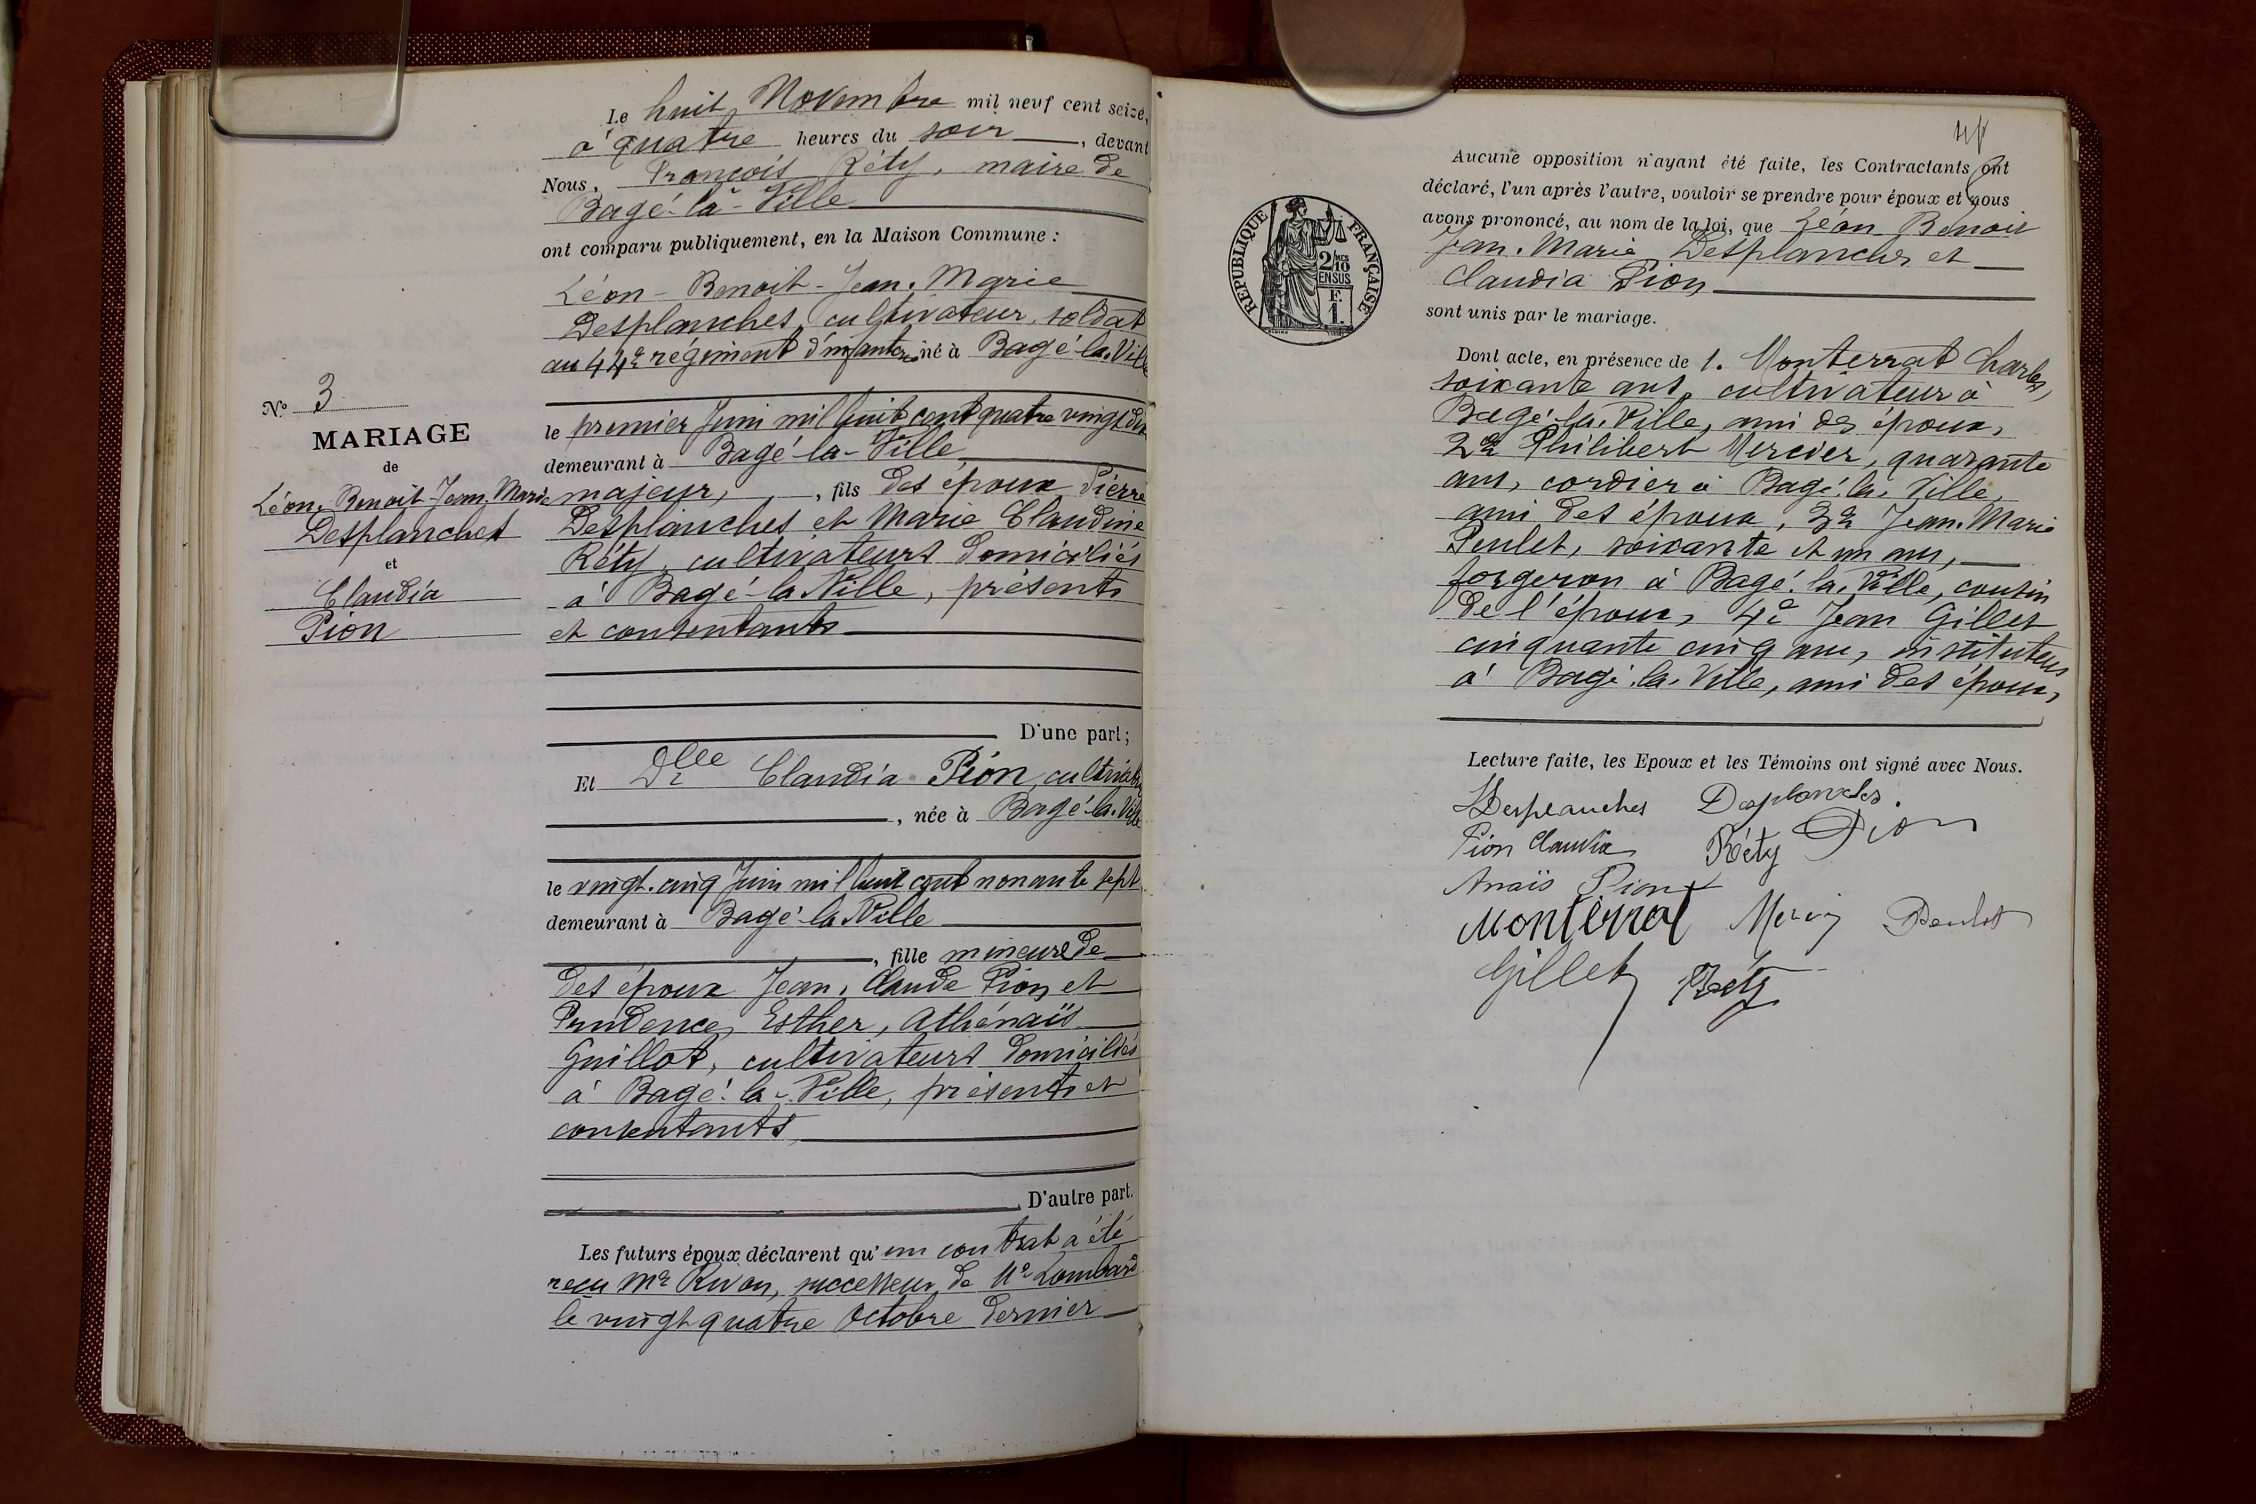 Le huit Novembre mil neuf cent seize,
à quatre heures du soir, devant
Nous, François Réty, maire de
Bagé-la-Ville
ont comparu publiquement, en la Maison Commune :
Léon-Benoit-Jean-Marie
Desplanches, cultivateur, soldat
au 44e régiment d'infanterie né à Bagé-la-Ville
le premier Juin mil huit cent quatre vingt dix
demeurant à Bagé-la-Ville
majeur, fils des époux Pierre
Desplanches et Marie Claudine
Réty, cultivateurs domiciliés
à Bagé-la-Ville, présents
et consentants
D'une part ;
Et Dlle Claudia Pion, cultivatrice
, née à Bagé-la-Ville
le vingt-cinq Juin mil huit cent nonante sept
demeurant à Bagé-la-Ville
, fille mineure de
des époux Jean-Claude Pion et
Prudence, Esther, Athénaïs
Guillot, cultivateurs domiciliés
à Bagé-la-Ville, présents et
consentants
D'autre part.
Les futurs époux déclarent qu'un contrat a été
reçu Me Rivon, successeur de Me Lombard
le vingt quatre Octobre dernier
No 3
MARIAGE
de
Léon-Benoit-Jean-Marie
Desplanches
et
Claudia
Pion
Aucune opposition n'ayant été faite, les Contractants ont
déclaré, l'un après l'autre, vouloir se prendre pour époux et nous
avons prononcé, au nom de la loi, que Léon Benoit
Jean-Marie Desplanches et
Claudia Pion
sont unis par le mariage.
Dont acte, en présence de 1. Monterrat Charles,
soixante ans, cultivateur à
Bagé-la-Ville, ami des époux,
2e Philibert Mercier, quarante
ans, cordier à Bagé-la-Ville,
ami des époux, 3e Jean-Marie
Peulet, soixante et un ans,
forgeron à Bagé-la-Ville, cousin
de l'époux, 4e Jean Gillet
cinquante cinq ans, instituteur
à Bagé-la-Ville, ami des époux,
Lecture faite, les Epoux et les Témoins ont signé avec Nous.
LDesplanches Desplanches.
Pion Claudia Réty Pion
Anaïs Pion
Monterrat Mercier Peulet
Gillet Réty
RÉPUBLIQUE FRANÇAISE
2/10MES
EN SUS
F.
1.